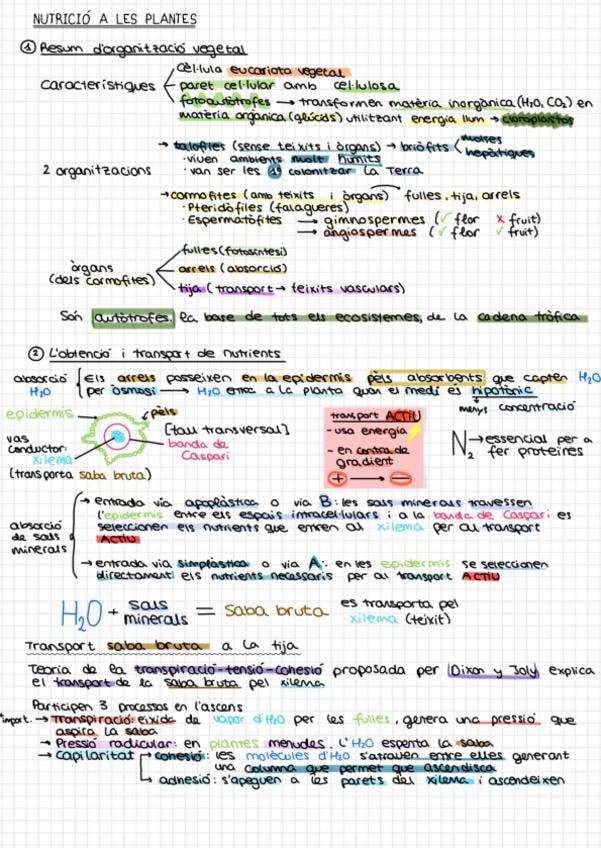 NUTRICIÓ A LES PLANTES
① Resum d'organització vegetal
Característiques
Cèl·lula eucariota vegetal
paret cel·lular amb cel·lulosa
fotoautòtrofes → transformen matèria inorgànica (H₂O, CO₂) en
matèria orgànica (glúcids) utilitzant energia llum → cloroplastos
2 organitzacions
→ talofites (sense teixits i òrgans) → briòfits
molses
hepàtiques
· viuen ambients molt humits
· van ser les 1º colonitzar la Terra
→ cormofites (amb teixits i òrgans) fulles, tija, arrels
· Pteridòfiles (falagueres)
· Espermatòfites → gimnospermes (✓ flor ✗ fruit)
→ angiospermes (✓ flor ✓ fruit)
òrgans
(dels cormofites)
fulles (fotosíntesi)
arrels (absorció)
tija (transport → teixits vasculars)
Són autòtrofes, la base de tots els ecosistemes, de la cadena tròfica
② L'obtenció i transport de nutrients
absorció
H₂O
Els arrels posseixen en la epidermis pèls absorbents que capten H₂O
per òsmosi → H₂O entra a la planta quan el medi és hipotònic
menys concentració
epidermis
pèls
[tall transversal]
banda de
Caspari
vas
conductor:
xilema
(transporta saba bruta)
transport ACTIU
- usa energia
- en contra de
gradient
+ → -
N₂ → essencial per a
fer proteïnes
absorció
de sals
minerals
→ entrada via apoplàstica o via B: les sals minerals travessen
l'epidermis entre els espais intracel·lulars i a la banda de Caspari es
seleccionen els nutrients que entren al xilema per al transport
ACTIU
→ entrada via simplàstica o via A: en les epidermis se seleccionen
directament els nutrients necessaris per al transport ACTIU
H₂O + sals minerals = saba bruta
es transporta pel
xilema (teixit)
Transport saba bruta a la tija
Teoria de la transpiració-tensió-cohesió proposada per Dixon y Joly explica
el transport de la saba bruta pel xilema
Participen 3 processos en l'ascens
import. → Transpiració: eixida de vapor d'H₂O per les fulles, genera una pressió que
aspira la saba
→ Pressió radicular: en plantes menudes. L'H₂O espenta la saba
→ Capilaritat
cohesió: les molècules d'H₂O s'atrauen entre elles generant
una columna que permet que ascendisca
adhesió: s'apeguen a les parets del xilema i ascendeixen